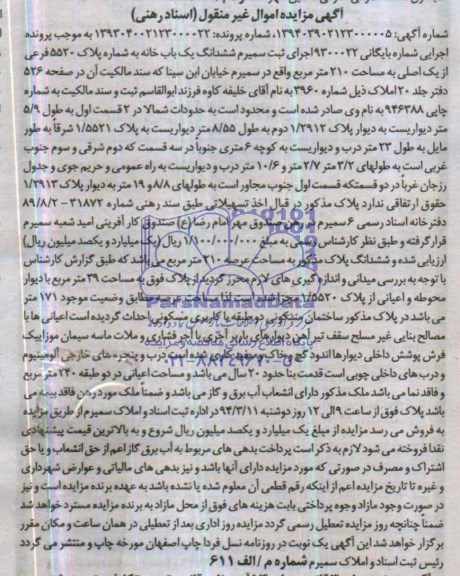 آگهی مزایده اموال غیر منقول (اسناد رهنی)
شماره آگهی: ۱۳۹۴۰۳۹۰۲۱۲۳۰۰۰۰۰۵، شماره پرونده: ۱۳۹۳۰۴۰۰۲۱۲۳۰۰۰۰۲۲ به موجب پرونده
اجرایی شماره بایگانی ۹۳۰۰۰۲۲ اجرای ثبت سمیرم ششدانگ یک باب خانه به شماره پلاک ۵۵۲۰ فرعی
از یک اصلی به مساحت ۲۱۰ متر مربع واقع در سمیرم خیابان ابن سینا که سند مالکیت آن در صفحه ۵۲۶
دفتر جلد ۲۰ املاک ذیل شماره ۳۹۶۰ به نام آقای خلیفه کاوه فرزند ابوالقاسم ثبت و سند مالکیت به شماره
چاپی ۹۴۶۳۸۸ به نام وی صادر شده است و محدود است به حدودات شمالا در ۲ قسمت اول به طول ۵/۹
متر دیواریست به دیوار پلاک ۱/۲۹۱۲ دوم به طول ۸/۵۵ متر دیواریست به پلاک ۱/۵۵۲۱ شرقا به طور
مایل به طول ۲۳ متر درب و دیواریست به کوچه ۶ متری جنوبا در سه قسمت که دوم شرقی و سوم جنوب
غربی است به طولهای ۳/۲ متر ۲/۷ متر و ۱۰/۶ متر درب و دیواریست به راه عمومی و حریم جوی و جدول
رزجان غربا در دو قسمتکه قسمت اول جنوب مجاور است به طولهای ۸/۸ و ۱۹ متر به دیوار پلاک ۱/۲۹۱۳
حقوق ارتفاقی ندارد پلاک مذکور در قبال اخذ تسهیلاتی طبق سند رهنی شماره ۳۱۸۷۲ - ۸۹/۸/۲
دفترخانه اسناد رسمی ۶ سمیرم در رهن صندوق مهر امام رضا (ع) صندوق کار آفرینی امید شعبه سمیرم
قرار گرفته و طبق نظر کارشناس رسمی به مبلغ ۱/۱۰۰/۰۰۰/۰۰۰ ریال (یک میلیارد و یکصد میلیون ریال)
ارزیابی شده و ششدانگ پلاک مذکور به مساحت عرصه ۲۱۰ متر مربع می باشد که طبق گزارش کارشناس
با توجه به بررسی میدانی و اندازه گیری های لازم محرز گردید از پلاک فوق به مساحت ۳۹ متر مربع با دیوار
محوطه و اعیانی از پلاک ۱/۵۵۲۰ مجزا شده است لذا مساحت عرصه مطابق وضعیت موجود ۱۷۱ متر
می باشد در پلاک مذکور ساختمان مسکونی دو طبقه با کاربری مسکونی احداث گردیده است اعیانی ها با
مصالح بنایی غیر مسلح سقف تیر آهن دیوارهای باربر آجری با آجر فشاری و ملات ماسه سیمان موزاییک
فرش پوشش داخلی دیوارها اندود گچ و خاک و سفید کاری شده است درب و پنجره های خارجی آلومینیوم
و درب های داخلی چوبی است قدمت بنا حدود ۲۰ سال می باشد و مساحت اعیانی در دو طبقه ۲۴۰ متر مربع
و فاقد نما می باشد ملک مذکور دارای انشعاب آب برق و گاز می باشد و ضمنا ملک مورد رهن فاقد بیمه می
باشد پلاک فوق از ساعت ۹ الی ۱۲ روز دوشنبه ۹۴/۳/۱۱ در اداره ثبت اسناد و املاک سمیرم از طریق مزایده
به فروش می رسد مزایده از مبلغ یک میلیارد و یکصد میلیون ریال شروع و به بالاترین قیمت پیشنهادی
نقدا فروخته می شود لازم به ذکر است پرداخت بدهی های مربوط به آب برق گاز اعم از حق انشعاب و یا حق
اشتراک و مصرف در صورتی که مورد مزایده دارای آنها باشد و نیز بدهی های مالیاتی و عوارض شهرداری
و غیره تا تاریخ مزایده اعم از اینکه رقم قطعی آن معلوم شده یا نشده باشد به عهده برنده مزایده است و نیز
در صورت وجود مازاد وجوه پرداختی بابت هزینه های فوق از محل مازاد به برنده مزایده مسترد خواهد شد
ضمنا چنانچه روز مزایده تعطیل رسمی گردد مزایده روز اداری بعد از تعطیلی در همان ساعت و مکان مقرر
برگزار خواهد شد این آگهی یک نوبت در روزنامه نسل فردا چاپ اصفهان مورخه چاپ و منتشر می گردد
رئیس ثبت اسناد و املاک سمیرم شماره م/الف ۶۱۱
ParsNamadData
۰۲۱-۸۸۳۴۹۶۷۰-۵